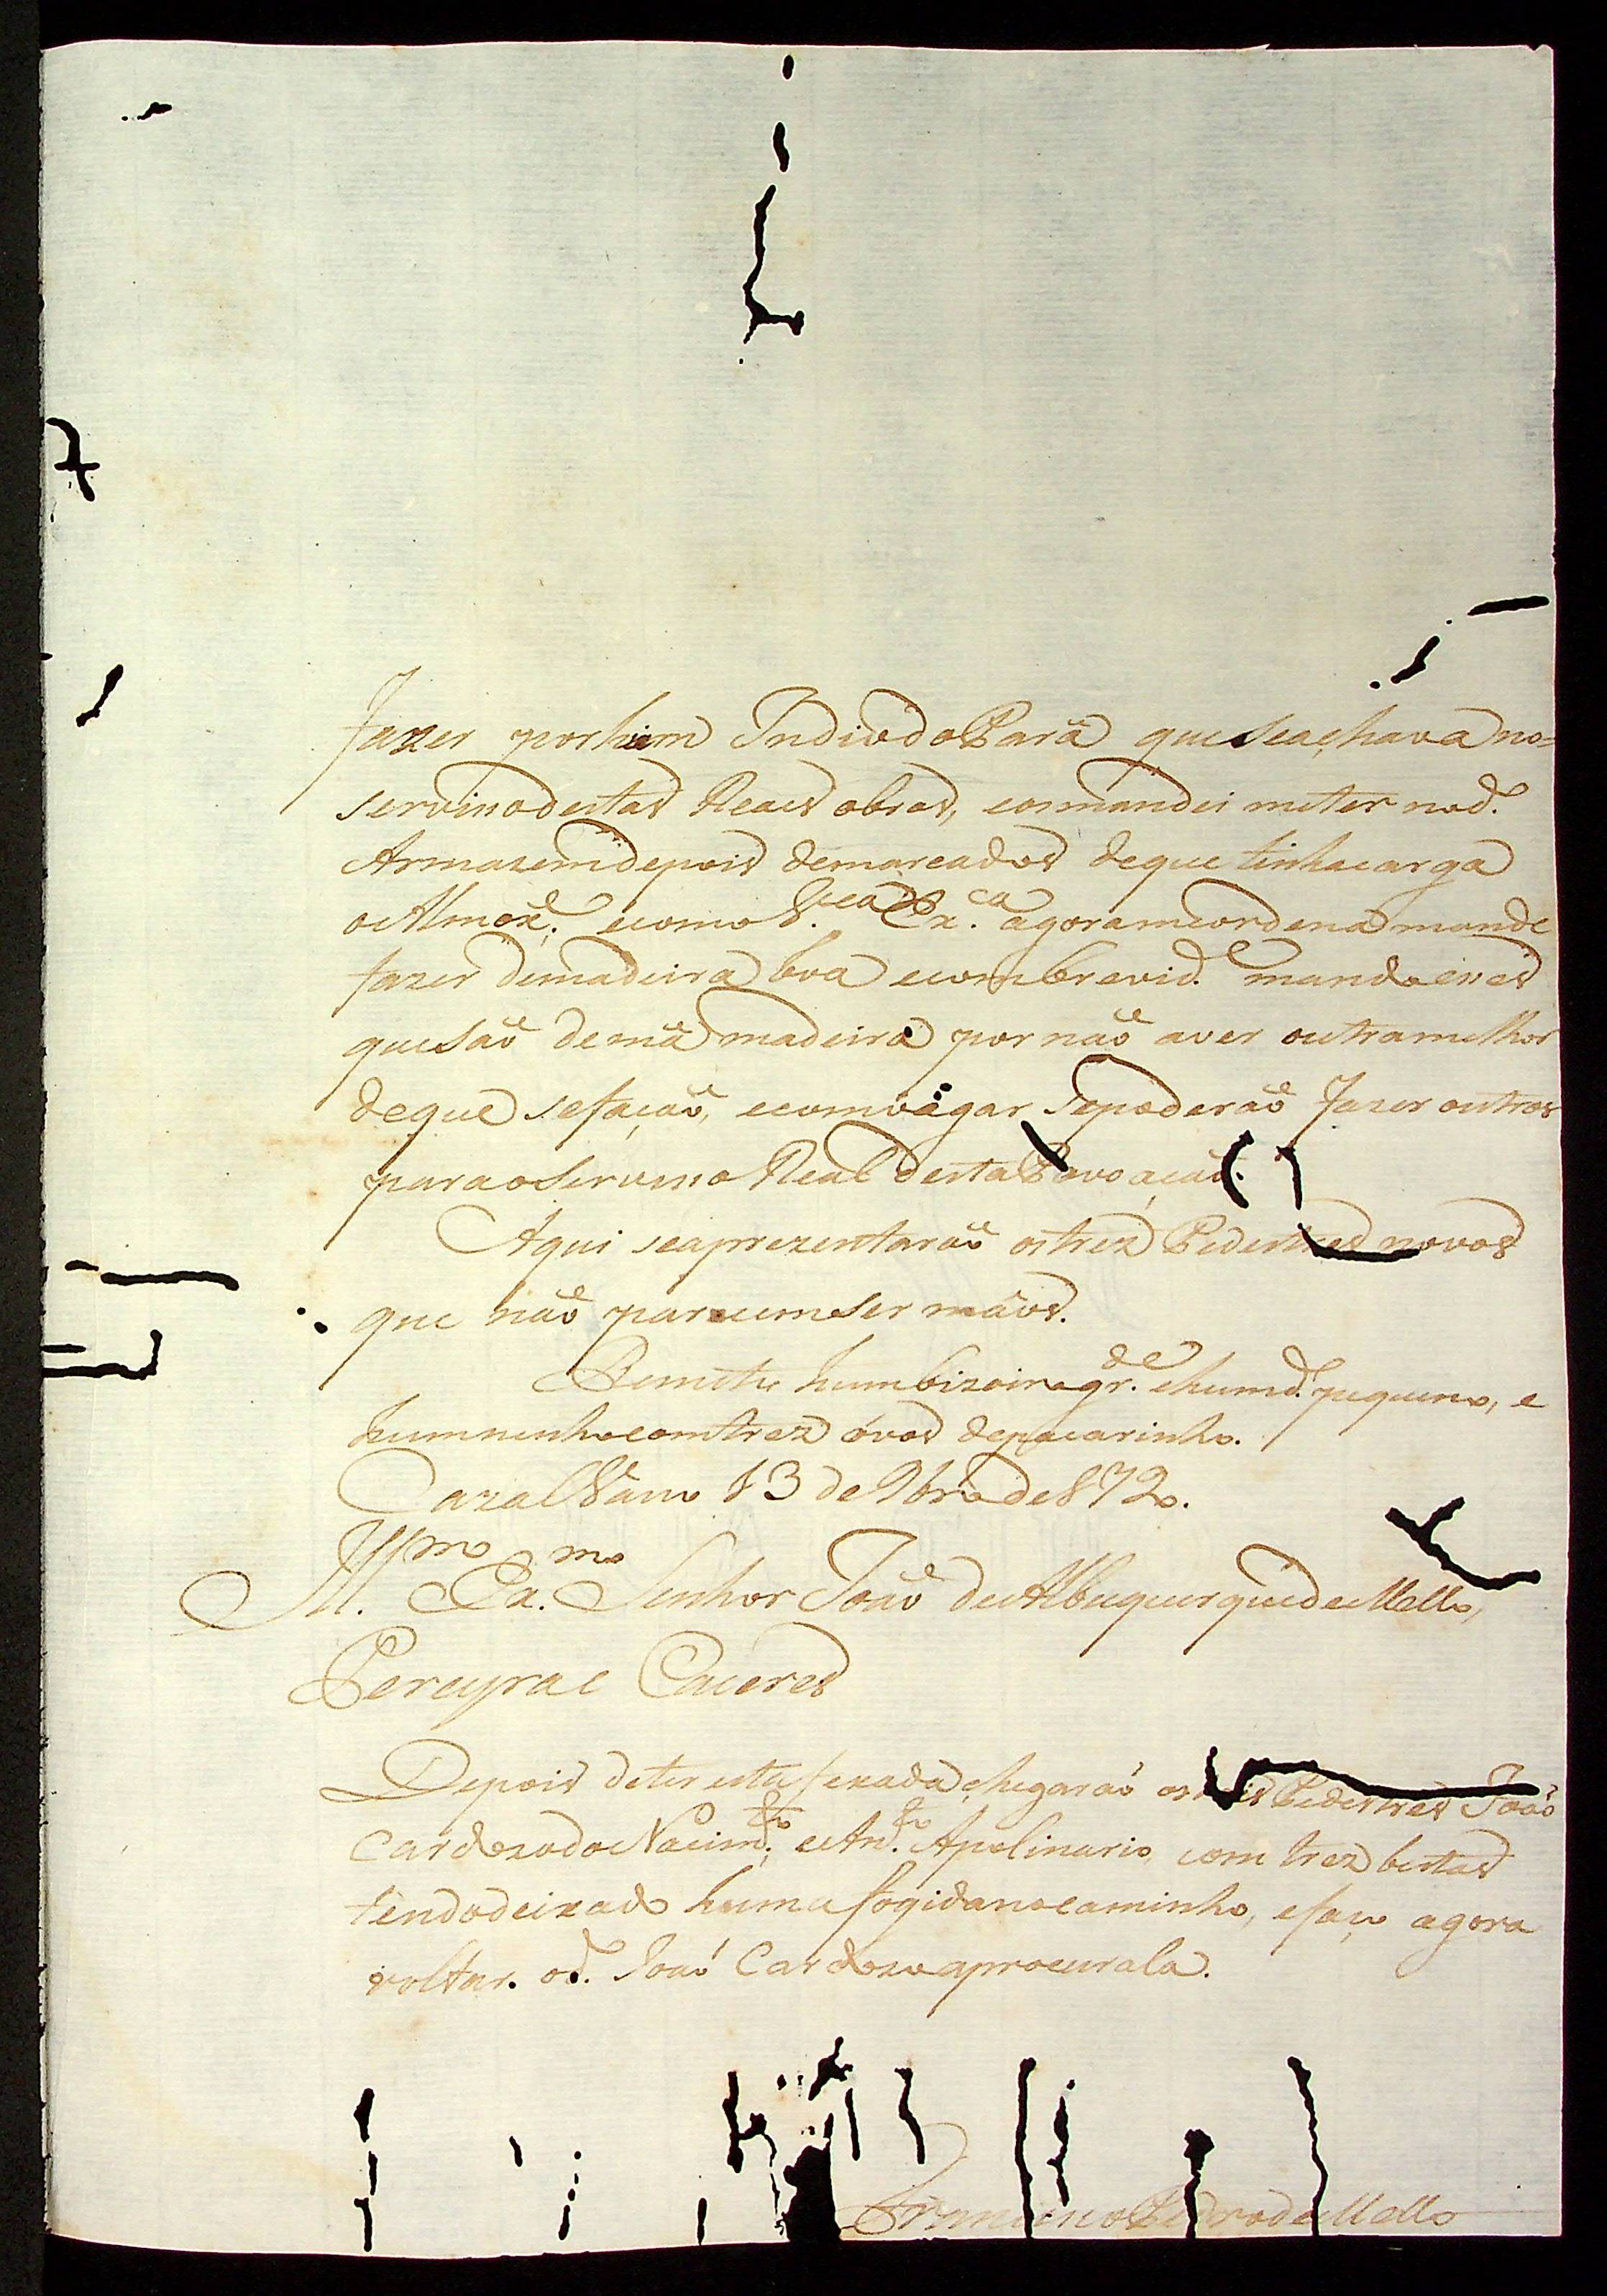 fazer por hum Indio do Pará que se achava no=
serviso destas Reaes obras, e os mandei meter no d.
Armazem depois de mareados de que tinha carga
o Almox.e e como V. Ex.ca agora me ordena mande
fazer de madeira boa e com brevid.e mando esses
que saõ de má madeira por naõ aver outra melhor
de que se façaõ, e com vagar se poderaõ fazer outros
para o serviso Real desta Povoaçaõ.
Aqui se aprezentaraõ os trez Pedestres novos
que naõ parecem ser máos.
Remeto hum bizoiro gr.de e hum d. pequeno, e
hum ninho com trez óvos de pacarinho.
Cazal Vasco 13 de 9bro de
Ill.mo Ex.mo Senhor Joaõ de Albuquerque de Mello,
Pereyra e Caceres
Depois de ter esta fexada chegaraõ os Pedestres Joaõ
Cardozo do Nacim.to, e Ant.o Apolinario com trez bestas
tendo deixado huma fogida no caminho, e faço agora
voltar o d. Joaõ Cardozo a procurala.
Francisco Pedro de Mello